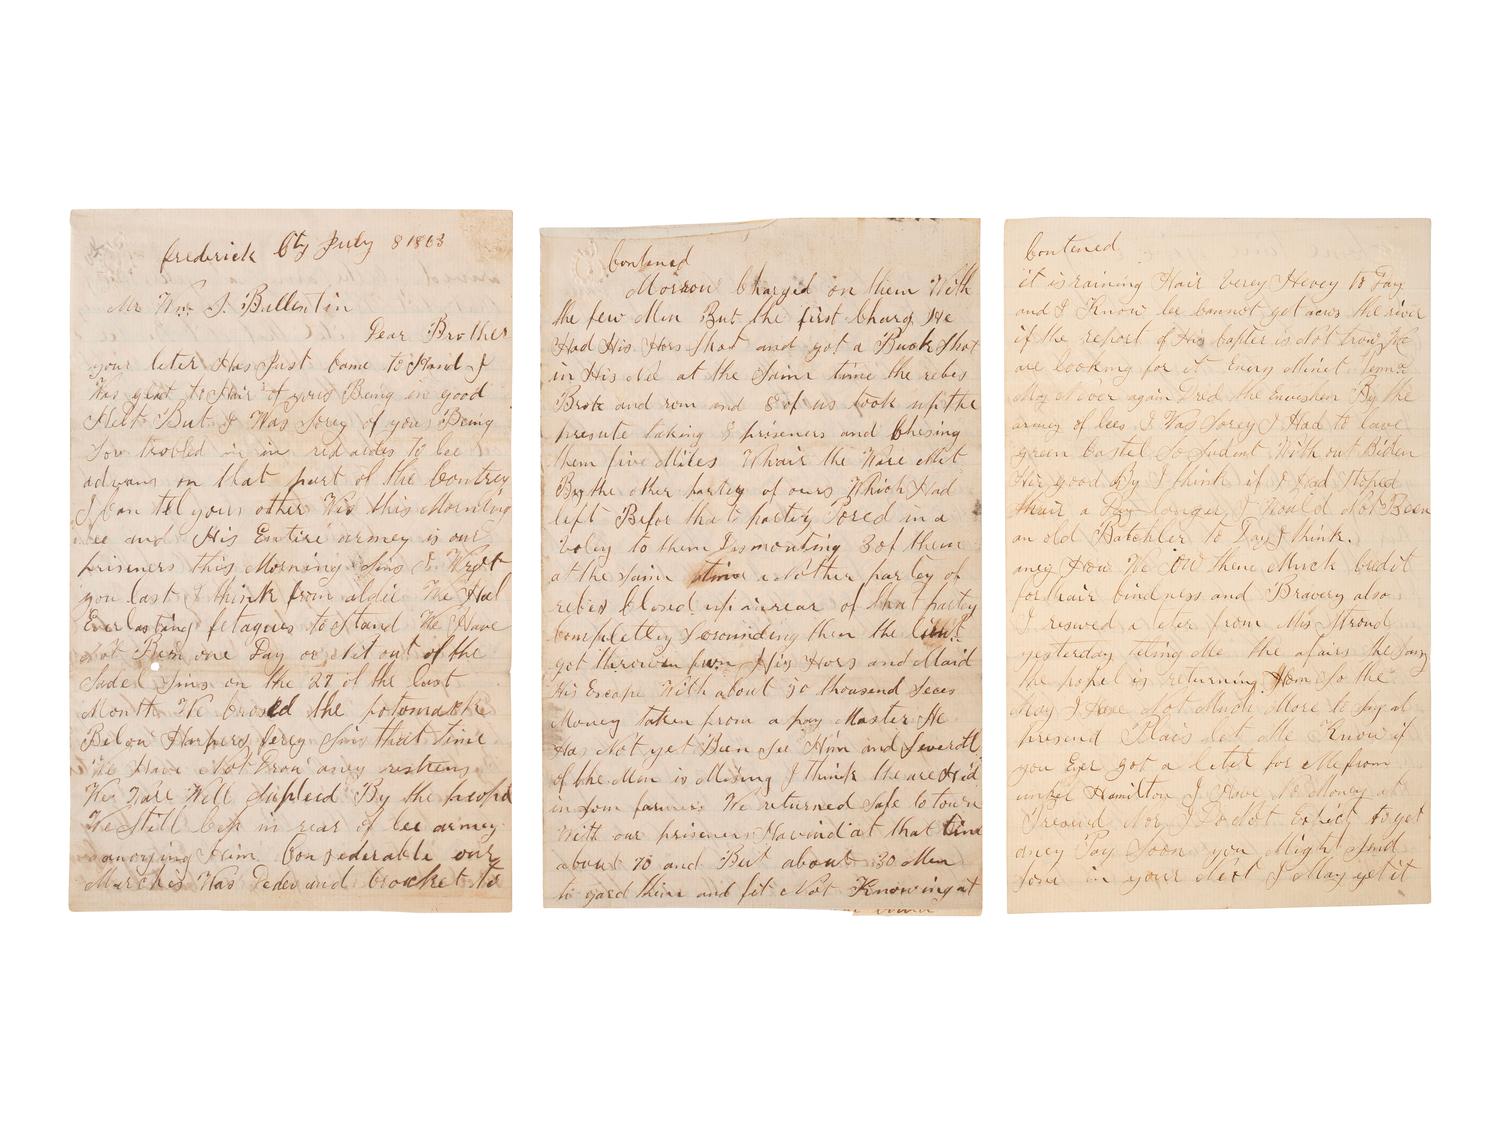 frederick Cty July 8 1863
Mr Wm. S. Ballentin
Dear Brother
your leter Has Just Came to Hand I
Was glad to Hair of yous Being in good
Helt But I Was Sorey of you Being
Sow trobled in in regardes to lee
advans on that part of the Contrey
I Can tel you other Wis this Morning
lee and His Entire armey is our
prisners this Morning Sins I Wrot
you last I think from aldie We Had
Everlasting fetagues to Stand We Have
Not Been one Day or Nit out of the
Sadel Sins on the 27 of the last
Month We Crosed the potomack
Belou Harpers ferey Sins that time
We Have Not Drou aney rashens
We Ware Well Suplied By the people
We Still Cep in rear of lee armey
annoying Him Considerable our
March is Was Dedes and Crocket to
Contened
Morrow Charged on them With
the few Men But the first Charg He
Had His Hors Shot and got a Buck Shot
in His at the Saim time the rebes
Broke and ron and 8 of us took up the
presute taking 8 prisners and Chesing
them five Miles Whair the Ware Met
By the other partey of ours Which Had
left Befor that partey Pored in a
Voley to them Dismonting 3 of them
at the Saim time a Nother partey of
rebes Closed up in rear of that partey
Completley Serounding them the lieut
got throwen from His Hors and Maid
His Escape With about 30 thousand
Money taken from a pay Master He
Has Not yet Been See Him and Severell
of the Men is Mising I think the are Hid
in Som farmers We returned Safe to town
With our prisners Having at that time
about 70 and But about 30 Men
to gard them and fit Not Knowing at
Contened
it is raining Hair Verey Hevey to Day
and I Know lee Cannot get acros the river
if the report of His Capter is Not trow We
are looking for it Every Minit
May Never again Dred the Envashen By the
armey of lees I Was Sorey I Had to leave
green Castel So Sudent With out Biden
Her good By I think if I Had Stoped
thair a Day longer I Would Not Been
an old Batchler to Day I think.
aney How We ow them Much Credit
for thair Kindness and Bravery also
I resived a leter from Mis Stroud
yesterday teling Me the afairs the Says
the popel is returning Hom So the
May I Have Not Much More to Say at
presend Plais let Me Know if
you Ever got a leter for Me from
unkel Hamilton I Have No Money at
Presend Nor I Do Not Expect to get
aney Pay Soon you Might Send
Som in your Next I May get it